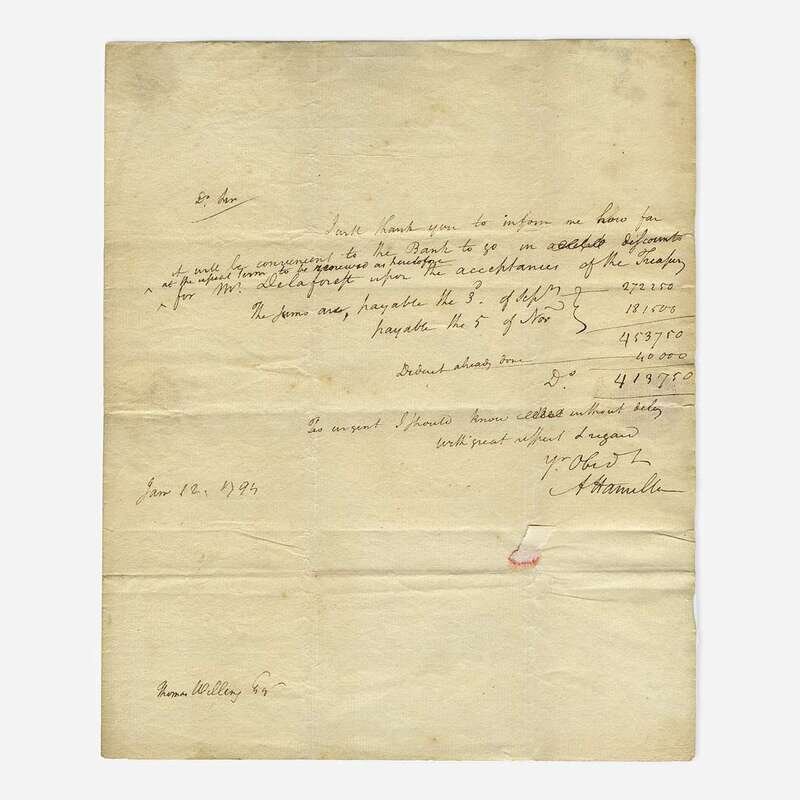 Dr Sir
I will thank you to inform me how far
it will be convenient to the Bank to go in discounts
^ at the usual term to be renewed as heretofore
^ for Mr. Delaforest upon the acceptances of the Treasury
The sums are, payable the 3d. of Sepr } 272250
payable the 5 of Novr } 181500
453750
Deduct already done 40000
Ds. 413750
Tis urgent I should know without delay
with great respect & regard
Yr Obed
A Hamilton
Jan 12. 1794
Thomas Willing Esqr